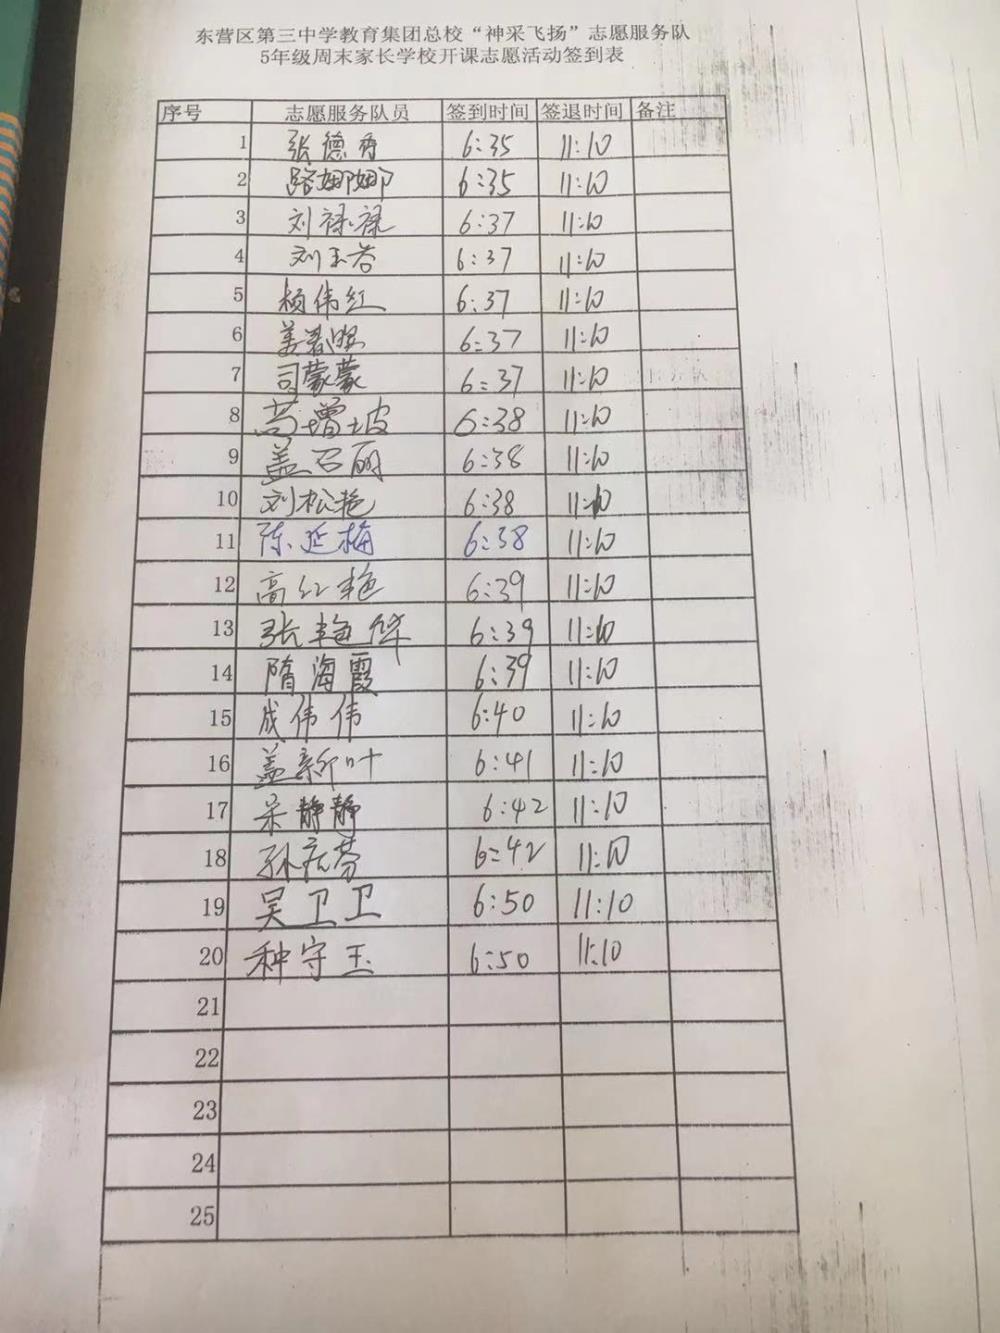 东营区第三中学教育集团总校“神采飞扬”志愿服务队
5年级周末家长学校开课志愿活动签到表
序号 志愿服务队员 签到时间 签退时间 备注
1 张德秀 6:35 11:10
2 路娜娜 6:35 11:10
3 刘禄禄 6:37 11:10
4 刘玉 6:37 11:10
5 杨伟红 6:37 11:10
6 姜春 6:37 11:10
7 司蒙蒙 6:37 11:10
8 增坡 6:38 11:10
9 盖召丽 6:38 11:10
10 刘松艳 6:38 11:10
11 陈延梅 6:38 11:10
12 高红艳 6:39 11:10
13 张艳华 6:39 11:10
14 隋海霞 6:39 11:10
15 成伟伟 6:40 11:10
16 盖新叶 6:41 11:10
17 静静 6:42 11:10
18 孙 芬 6:42 11:10
19 吴卫卫 6:50 11:10
20 种守玉 6:50 11:10
21
22
23
24
25